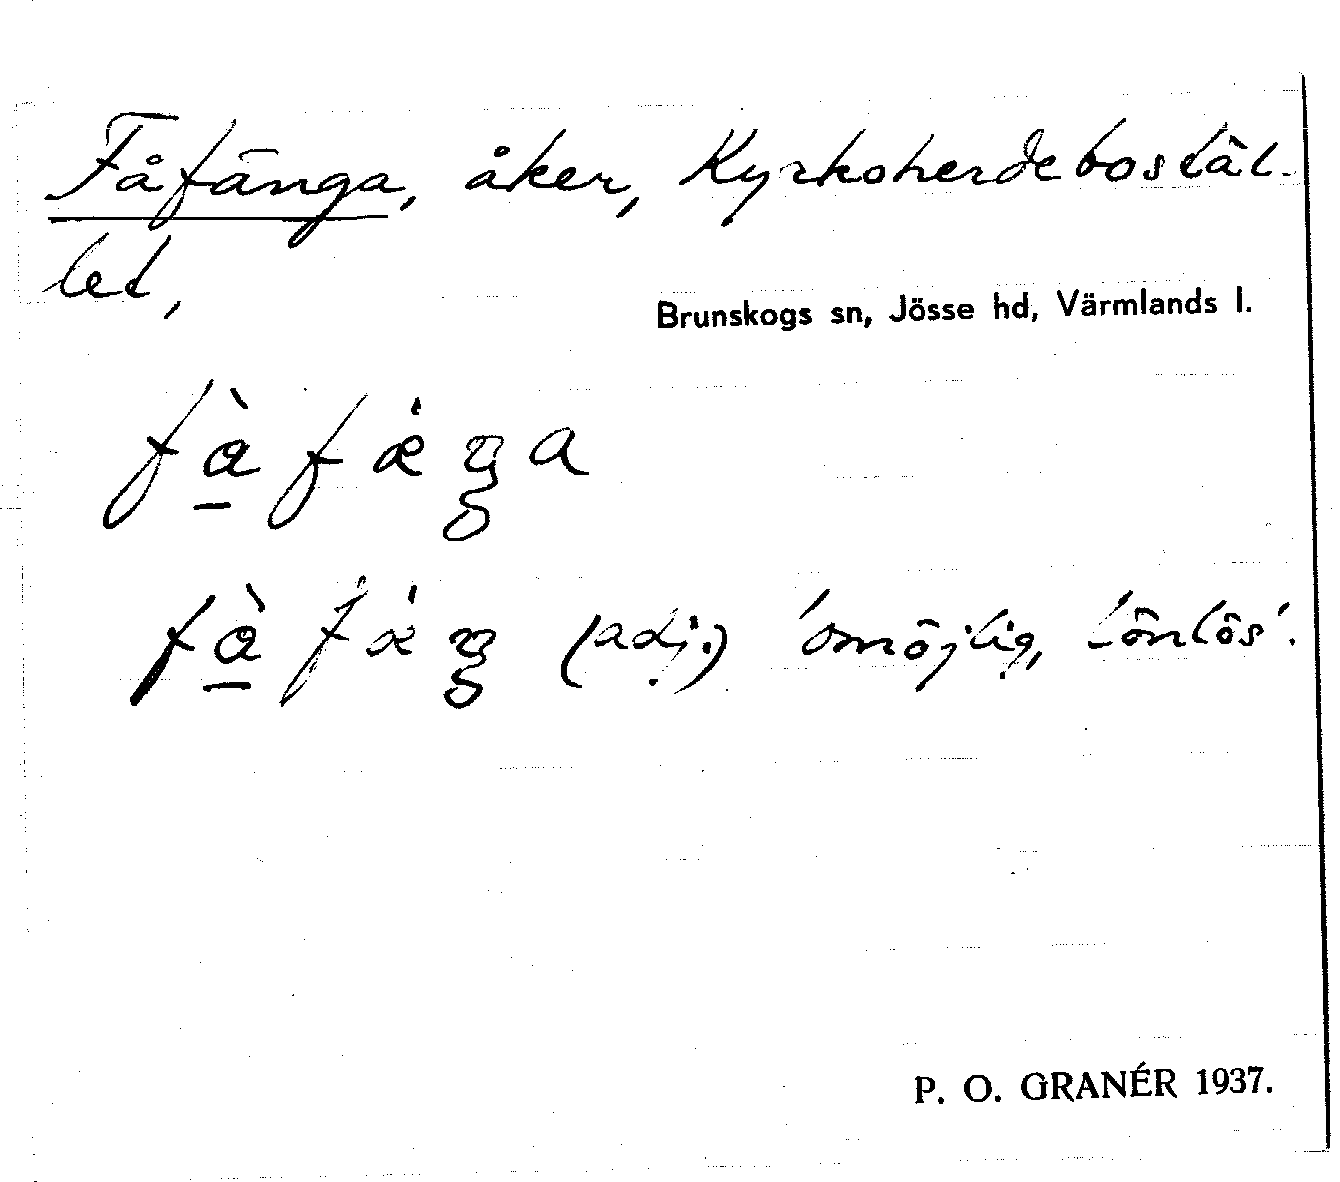 Fåfänga, åker, Kyrkoherdebostäl-
let,
Brunskogs sn, Jösse hd, Värmlands l.
fàfǽŋa
fàfǽŋ (adj.) 'omöjlig, lönlös'.
P. O. GRANÉR 1937.